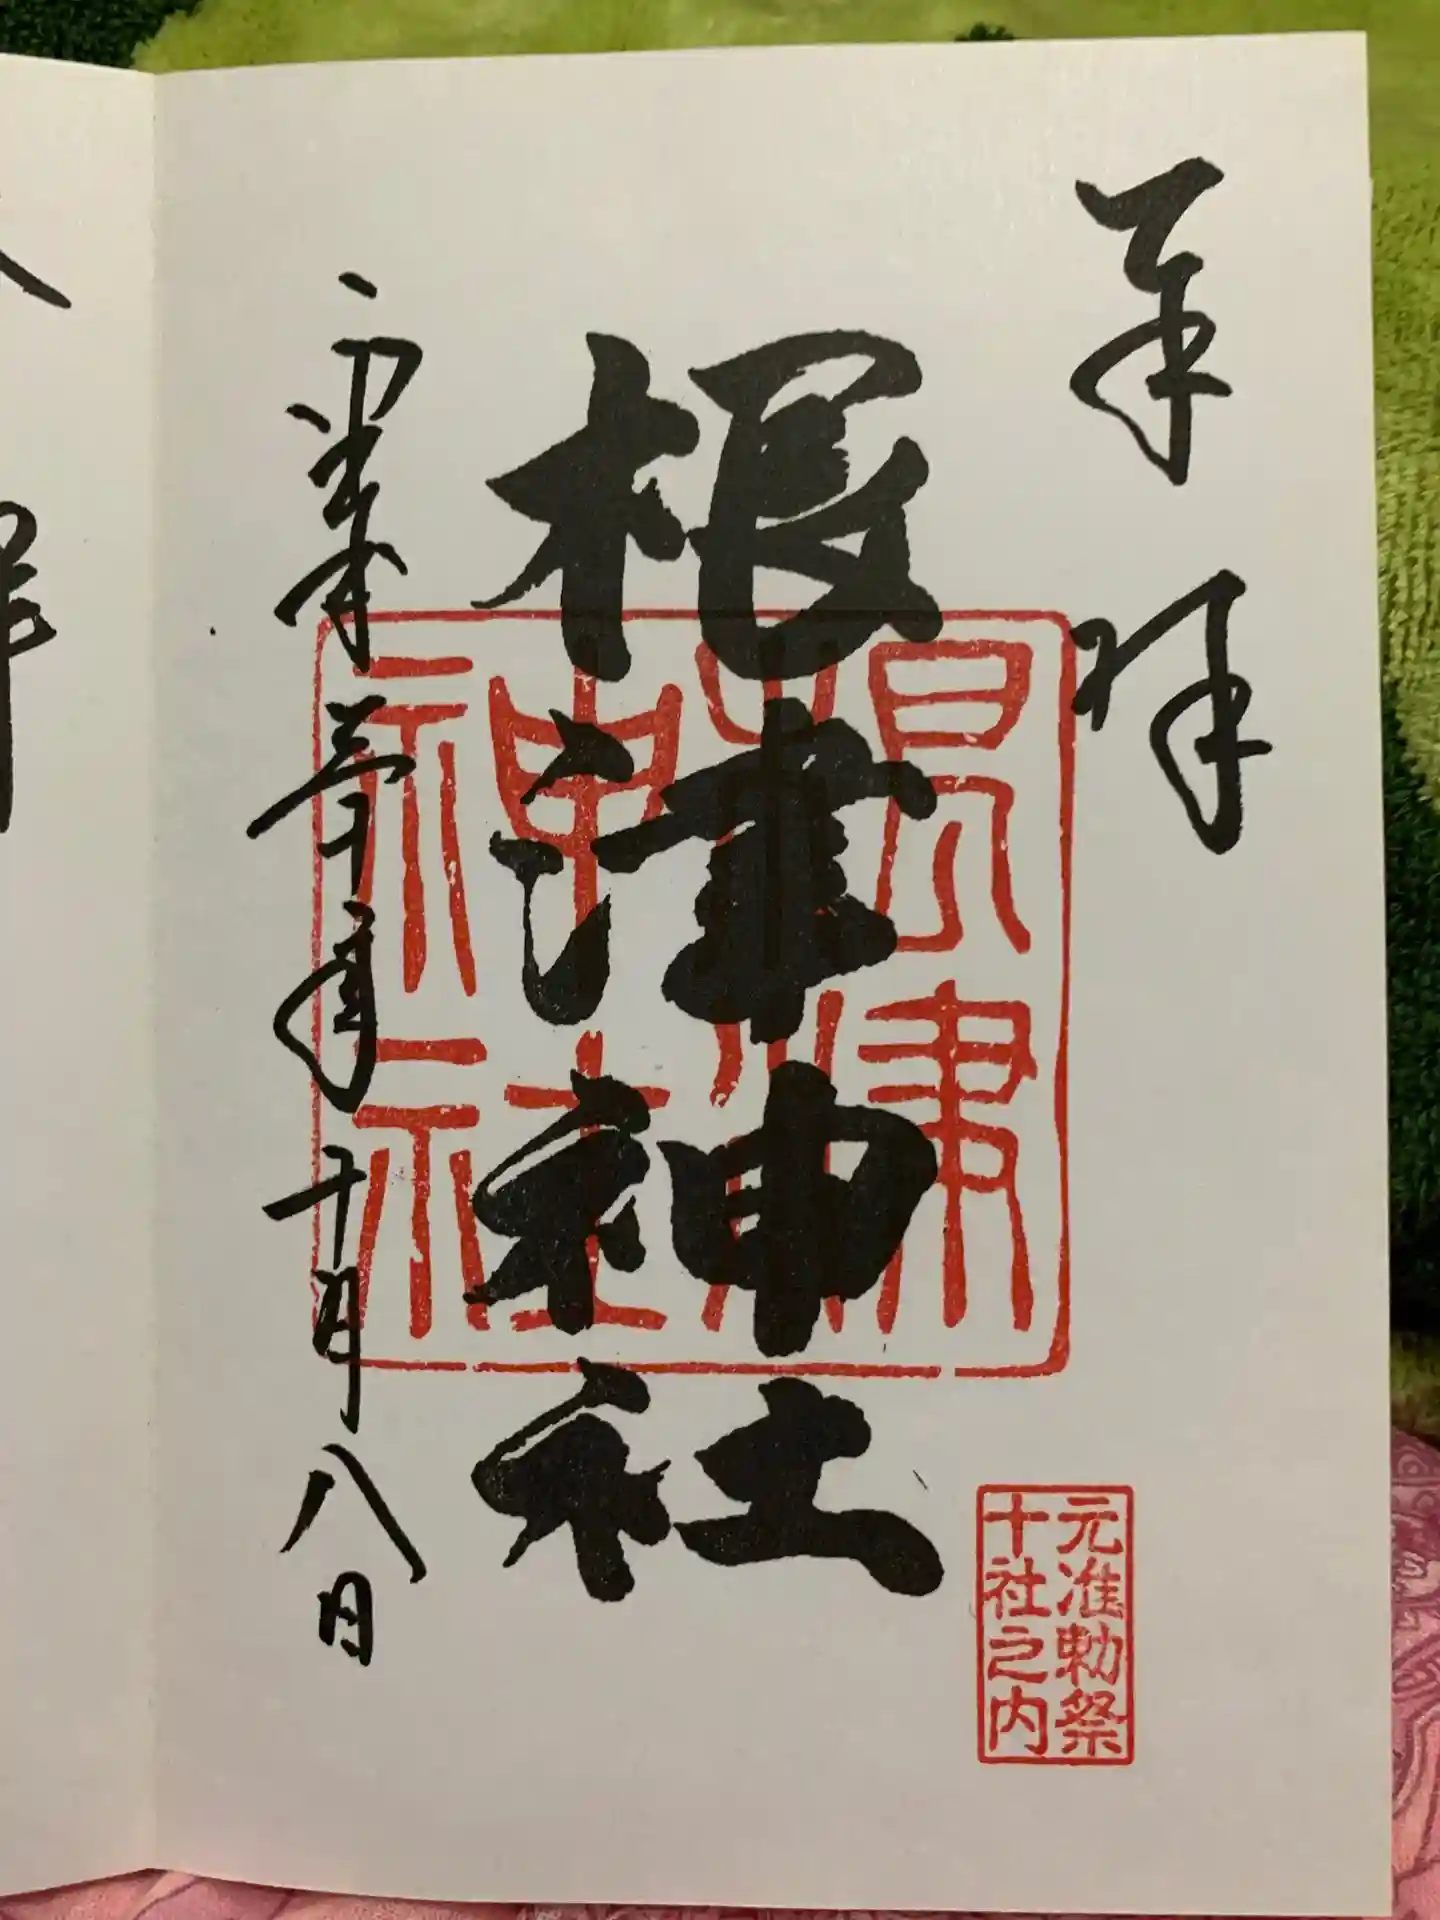 奉拝
根津神社
根津神社
平成三十年十月八日
元准勅祭
十社之内